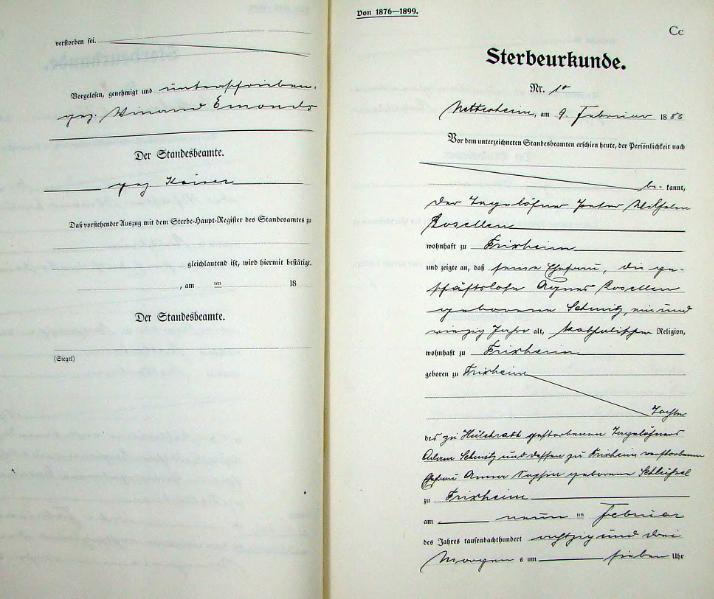 verstorben sei.
Vorgelesen, genehmigt und unterschrieben.
gez. Winand Emonds
Der Standesbeamte.
gez Kaiser
Daß vorstehender Auszug mit dem Sterbe-Haupt-Register des Standesamtes zu
gleichlautend ist, wird hiermit bestätigt.
, am ten 18
Der Standesbeamte.
(Siegel)
Von 1876—1899.
Cc
Sterbeurkunde.
Nr. 10
am 9. Februar 1883
Vor dem unterzeichneten Standesbeamten erschien heute, der Persönlichkeit nach
be- kannt,
der Tagelöhner Peter Wilhelm
Rosellen
wohnhaft zu Frixheim
und zeigte an, daß seine Ehefrau, die ge-
schäftslose Agnes Rosellen
geborene Schmitz, ein und
vierzig Jahre alt, katholischer Religion,
wohnhaft zu Frixheim
geboren zu Frixheim
Tochter
des zu Hülchrath gestorbenen Tagelöhners
Adam Schmitz und dessen zu Frixheim verstorbenen
Ehefrau Anna geborene
zu Frixheim
am neun ten Februar
des Jahres tausendachthundert achtzig und drei
Morgens um sieben Uhr